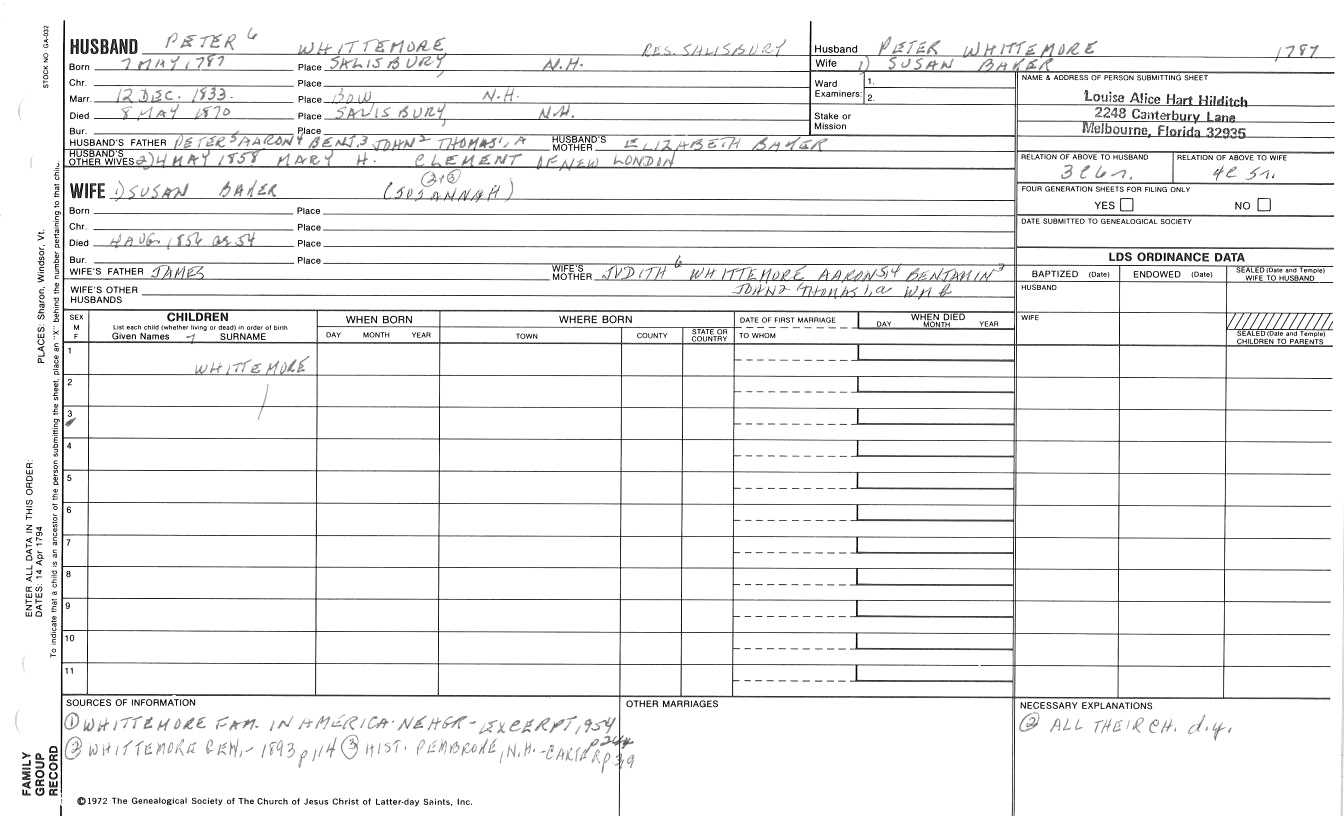 STOCK NO GA-032
HUSBAND PETER 6 WHITTEMORE RES. SALISBURY
Born 7 MAY 1787 Place SALISBURY, N.H.
Chr. Place
Marr. 12 DEC. 1833 Place BOW, N.H.
Died 8 MAY 1870 Place SALISBURY, N.H.
Bur. Place
HUSBAND'S FATHER PETER 5 AARON 4 BENJ. 3 JOHN 2 THOMAS 1, A HUSBAND'S MOTHER ELIZABETH BAKER
HUSBAND'S OTHER WIVES 2) 4 MAY 1858 MARY H. CLEMENT OF NEW LONDIN
WIFE 1) SUSAN BAKER (SUSANNAH)
Born Place
Chr. Place
Died 4 AUG. 1856 ae 54 Place
Bur. Place
WIFE'S FATHER JAMES WIFE'S MOTHER JUDITH 6 WHITTEMORE AARON 5,4 BENJAMIN 3
WIFE'S OTHER HUSBANDS JOHN 2 THOMAS 1, a
Husband PETER WHITTEMORE 1787
Wife 1) SUSAN BAKER
Ward Examiners: 1.
2.
Stake or Mission
NAME & ADDRESS OF PERSON SUBMITTING SHEET
Louise Alice Hart Hilditch
2248 Canterbury Lane
Melbourne, Florida 32935
RELATION OF ABOVE TO HUSBAND RELATION OF ABOVE TO WIFE
3C6r. 4C5r.
FOUR GENERATION SHEETS FOR FILING ONLY
YES NO
DATE SUBMITTED TO GENEALOGICAL SOCIETY
LDS ORDINANCE DATA
BAPTIZED (Date) ENDOWED (Date) SEALED (Date and Temple) WIFE TO HUSBAND
HUSBAND
WIFE
SEALED (Date and Temple) CHILDREN TO PARENTS
SEX M F
CHILDREN
List each child (whether living or dead) in order of birth
Given Names 7 SURNAME
WHEN BORN
DAY MONTH YEAR
WHERE BORN
TOWN COUNTY STATE OR COUNTRY
DATE OF FIRST MARRIAGE
TO WHOM
WHEN DIED
DAY MONTH YEAR
1
WHITTEMORE
2
3
4
5
6
7
8
9
10
11
SOURCES OF INFORMATION
① WHITTEMORE FAM. IN AMERICA - NEHGR - EXCERPT, 954
② WHITTEMORE GEN. - 1893 p 114 ③ HIST. PEMBROKE, N.H. - CARTER p 319
OTHER MARRIAGES
NECESSARY EXPLANATIONS
② ALL THEIR CH. d.y.
©1972 The Genealogical Society of The Church of Jesus Christ of Latter-day Saints, Inc.
FAMILY GROUP RECORD
ENTER ALL DATA IN THIS ORDER:
DATES: 14 Apr 1794
PLACES: Sharon, Windsor, Vt.
To indicate that a child is an ancestor of the person submitting the sheet, place an "X" behind the number pertaining to that chil